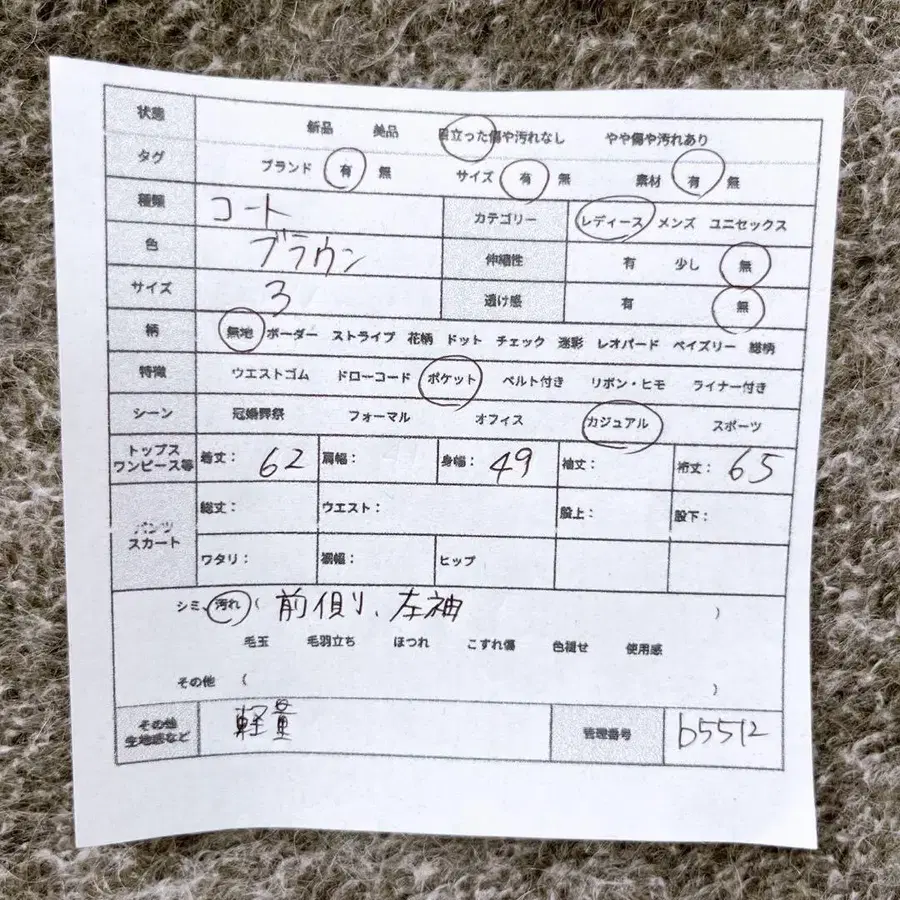 状態 新品 美品 目立った傷や汚れなし やや傷や汚れあり
タグ ブランド 有 無 サイズ 有 無 素材 有 無
種類 コート カテゴリー レディース メンズ ユニセックス
色 ブラウン 伸縮性 有 少し 無
サイズ 3 透け感 有 無
柄 無地 ボーダー ストライプ 花柄 ドット チェック 迷彩 レオパード ペイズリー 総柄
特徴 ウエストゴム ドローコード ポケット ベルト付き リボン・ヒモ ライナー付き
シーン 冠婚葬祭 フォーマル オフィス カジュアル スポーツ
トップス
ワンピース等 着丈: 62 肩幅: 身幅: 49 袖丈: 裄丈: 65
パンツ
スカート 総丈: ウエスト: 股上: 股下:
ワタリ: 裾幅: ヒップ
シミ、汚れ ( 前側、左袖 )
毛玉 毛羽立ち ほつれ こすれ傷 色褪せ 使用感
その他 ( )
その他
生地感など 軽量 管理番号 b5512